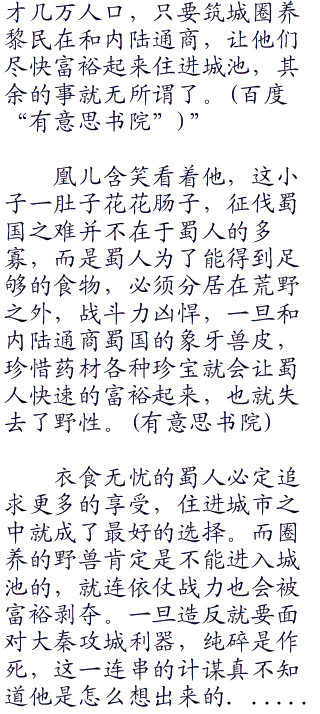 才几万人口，只要筑城圈养
黎民在和内陆通商，让他们
尽快富裕起来住进城池，其
余的事就无所谓了。(百度
“有意思书院”)”
凰儿含笑看着他，这小
子一肚子花花肠子，征伐蜀
国之难并不在于蜀人的多
寡，而是蜀人为了能得到足
够的食物，必须分居在荒野
之外，战斗力凶悍，一旦和
内陆通商蜀国的象牙兽皮，
珍惜药材各种珍宝就会让蜀
人快速的富裕起来，也就失
去了野性。(有意思书院)
衣食无忧的蜀人必定追
求更多的享受，住进城市之
中就成了最好的选择。而圈
养的野兽肯定是不能进入城
池的，就连依仗战力也会被
富裕剥夺。一旦造反就要面
对大秦攻城利器，纯碎是作
死，这一连串的计谋真不知
道他是怎么想出来的．．．．．．